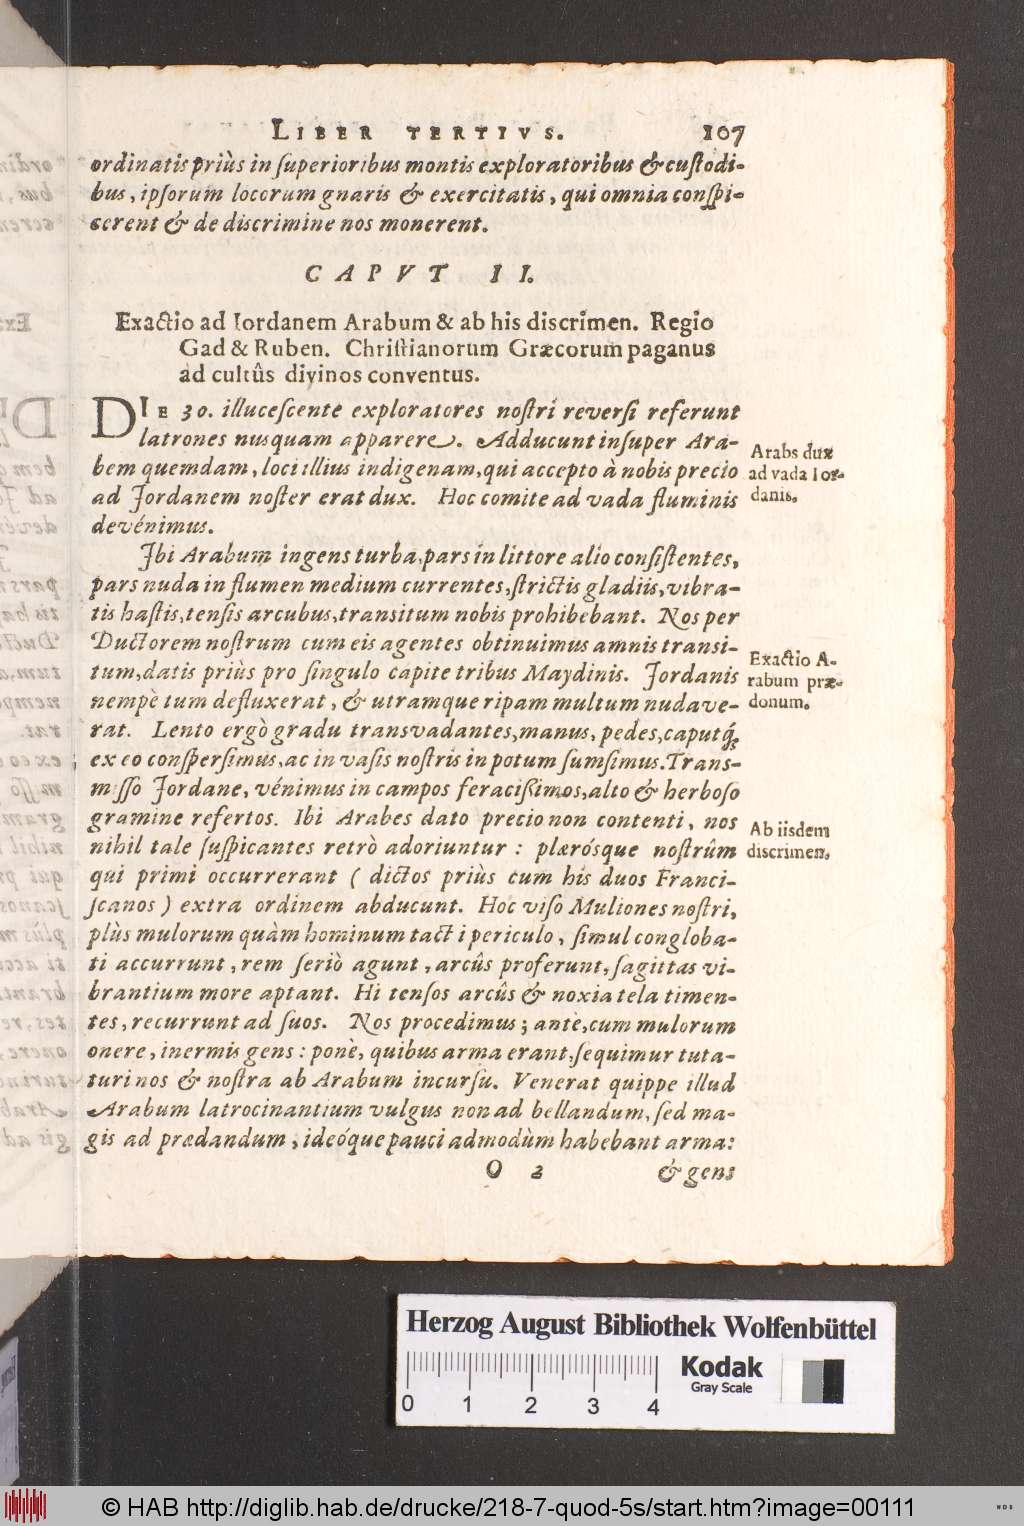 LIBER TERTIVS. 107
ordinatis priùs in superioribus montis exploratoribus & custodi-
bus, ipsorum locorum gnaris & exercitatis, qui omnia conspi-
cerent & de discrimine nos monerent.
CAPVT II.
Exactio ad Iordanem Arabum & ab his discrimen. Regio
Gad & Ruben. Christianorum Græcorum paganus
ad cultûs divinos conventus.
DIE 30. illucescente exploratores nostri reversi referunt
latrones nusquam apparere. Adducunt insuper Ara-
bem quemdam, loci illius indigenam, qui accepto à nobis precio
ad Jordanem noster erat dux. Hoc comite ad vada fluminis
devénimus.
Arabs dux
ad vada Ior-
danis.
Jbi Arabum ingens turba, pars in littore alio consistentes,
pars nuda in flumen medium currentes, strictis gladiis, vibra-
tis hastis, tensis arcubus, transitum nobis prohibebant. Nos per
Ductorem nostrum cum eis agentes obtinuimus amnis transi-
tum, datis priùs pro singulo capite tribus Maydinis. Jordanis
nempè tum defluxerat, & utramque ripam multum nudave-
rat. Lento ergò gradu transvadantes, manus, pedes, caputq́;
ex eo conspersimus, ac in vasis nostris in potum sumsimus. Trans-
misso Jordane, vénimus in campos feracißimos, alto & herboso
gramine refertos. Ibi Arabes dato precio non contenti, nos
nihil tale suspicantes retrò adoriuntur: plærósque nostrûm
qui primi occurrerant (dictos priùs cum his duos Franci-
scanos) extra ordinem abducunt. Hoc viso Muliones nostri,
plùs mulorum quàm hominum tacti periculo, simul congloba-
ti accurrunt, rem seriò agunt, arcûs proferunt, sagittas vi-
brantium more aptant. Hi tensos arcûs & noxia tela timen-
tes, recurrunt ad suos. Nos procedimus; antè, cum mulorum
onere, inermis gens: ponè, quibus arma erant, sequimur tuta-
turi nos & nostra ab Arabum incursu. Venerat quippe illud
Arabum latrocinantium vulgus non ad bellandum, sed ma-
gis ad prædandum, ideóque pauci admodùm habebant arma:
Exactio A-
rabum præ-
donum.
Ab iisdem
discrimen.
O 2 & gens
Herzog August Bibliothek Wolfenbüttel
0 1 2 3 4
Kodak
Gray Scale
© HAB http://diglib.hab.de/drucke/218-7-quod-5s/start.htm?image=00111